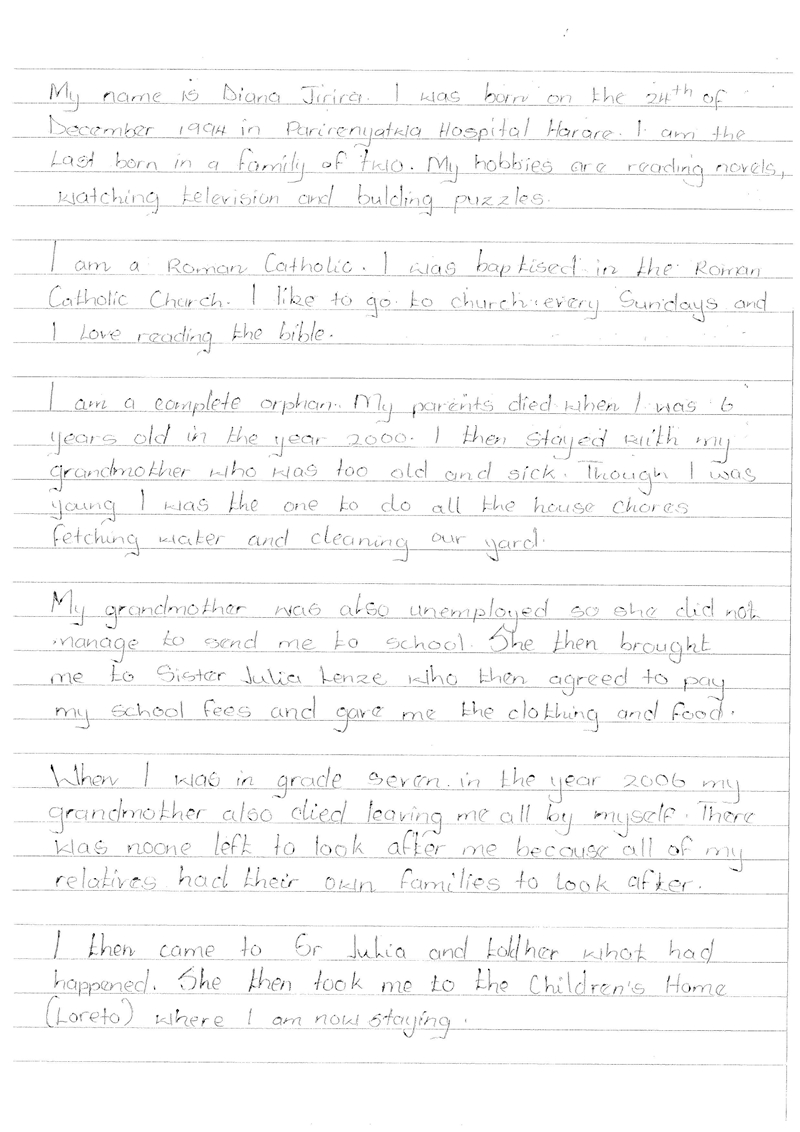 My name is Diana Jirira. I was born on the 24th of
December 1994 in Parirenyatwa Hospital Harare. I am the
Last born in a family of two. My hobbies are reading novels,
watching television and bulding puzzles.
I am a Roman Catholic. I was baptised in the Roman
Catholic Church. I like to go to church every Sundays and
I Love reading the bible.
I am a complete orphan. My parents died when I was 6
years old in the year 2000. I then stayed with my
grandmother who was too old and sick. Though I was
young I was the one to do all the house chores
fetching water and cleaning our yard.
My grandmother was also unemployed so she did not
manage to send me to school. She then brought
me to Sister Julia Lenze who then agreed to pay
my school fees and gave me the clothing and food.
When I was in grade seven in the year 2006 my
grandmother also died leaving me all by myself. There
was noone left to look after me because all of my
relatives had their own families to look after.
I then came to Sr Julia and told her what had
happened. She then took me to the Children's Home
(Loreto) where I am now staying.